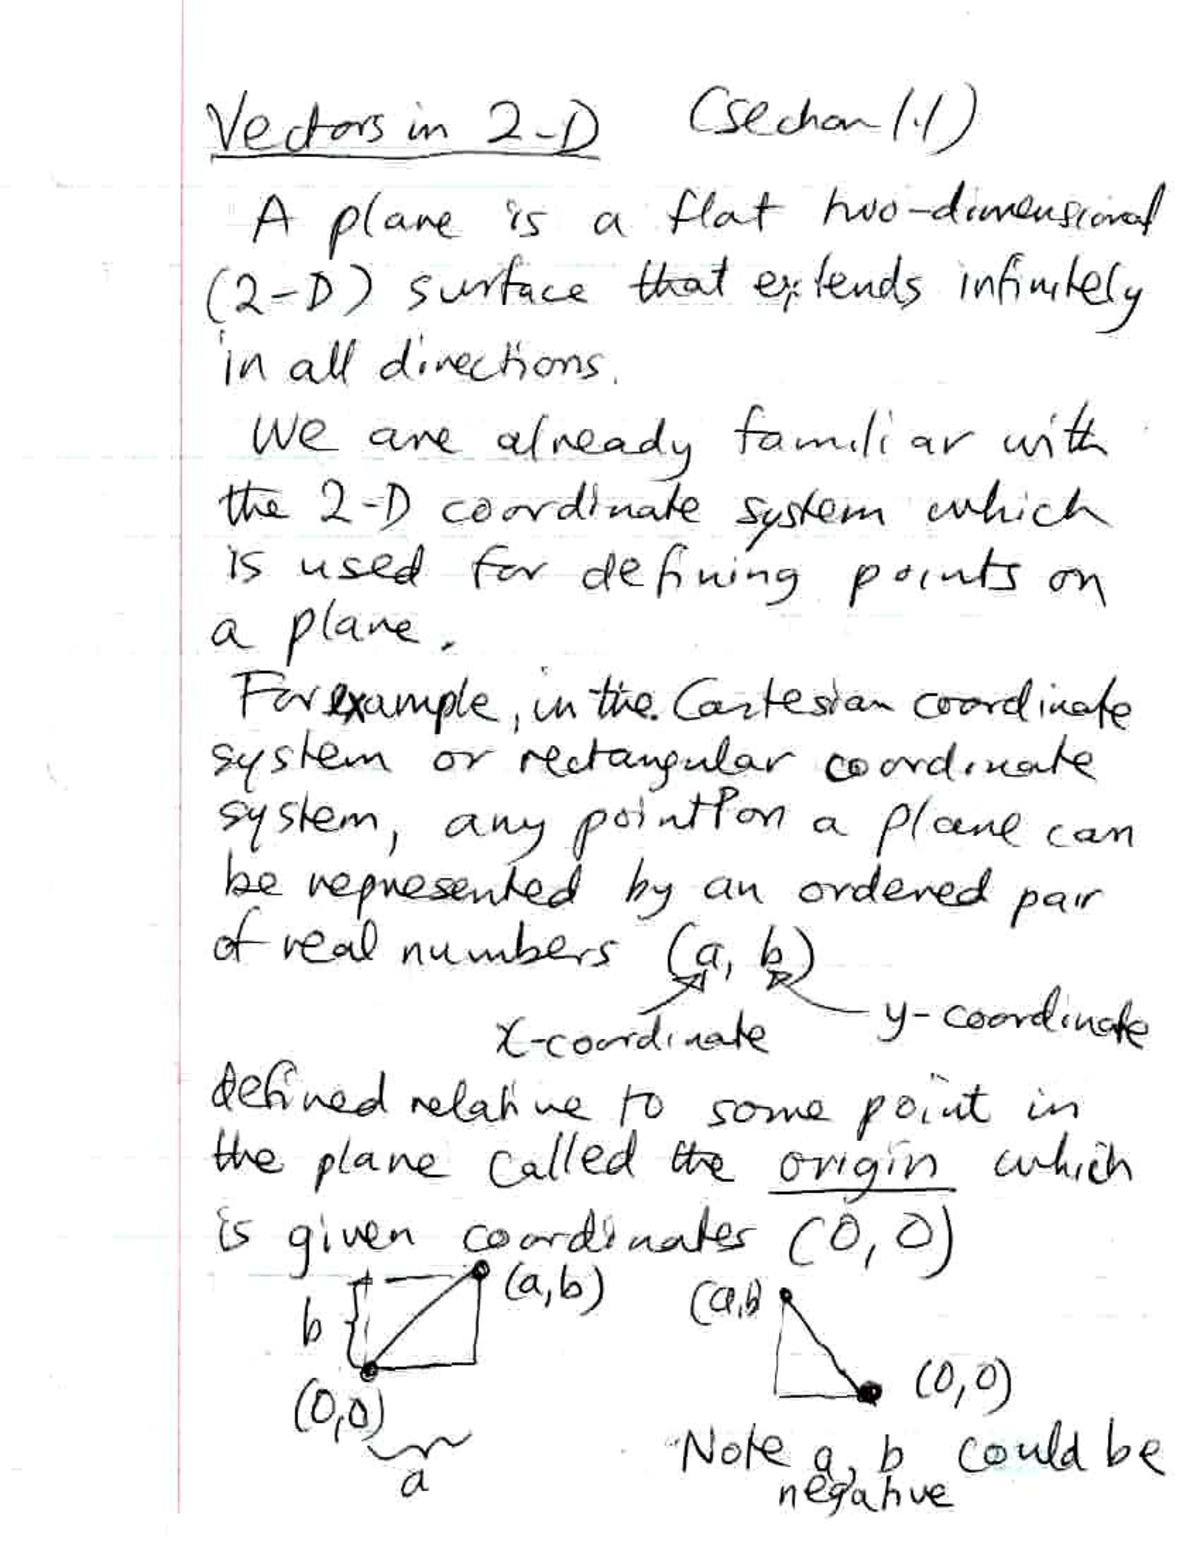 Vectors in 2-D (section 1.1)
A plane is a flat two-dimensional
(2-D) surface that extends infinitely
in all directions.
We are already familiar with
the 2-D coordinate system which
is used for defining points on
a plane.
For example, in the Cartesian coordinate
system or rectangular coordinate
system, any point P on a plane can
be represented by an ordered pair
of real numbers (a, b)
x-coordinate y-coordinate
defined relative to some point in
the plane called the origin which
is given coordinates (0,0)
(a,b) (a,b)
b
(0,0) (0,0)
a
Note a, b could be
negative